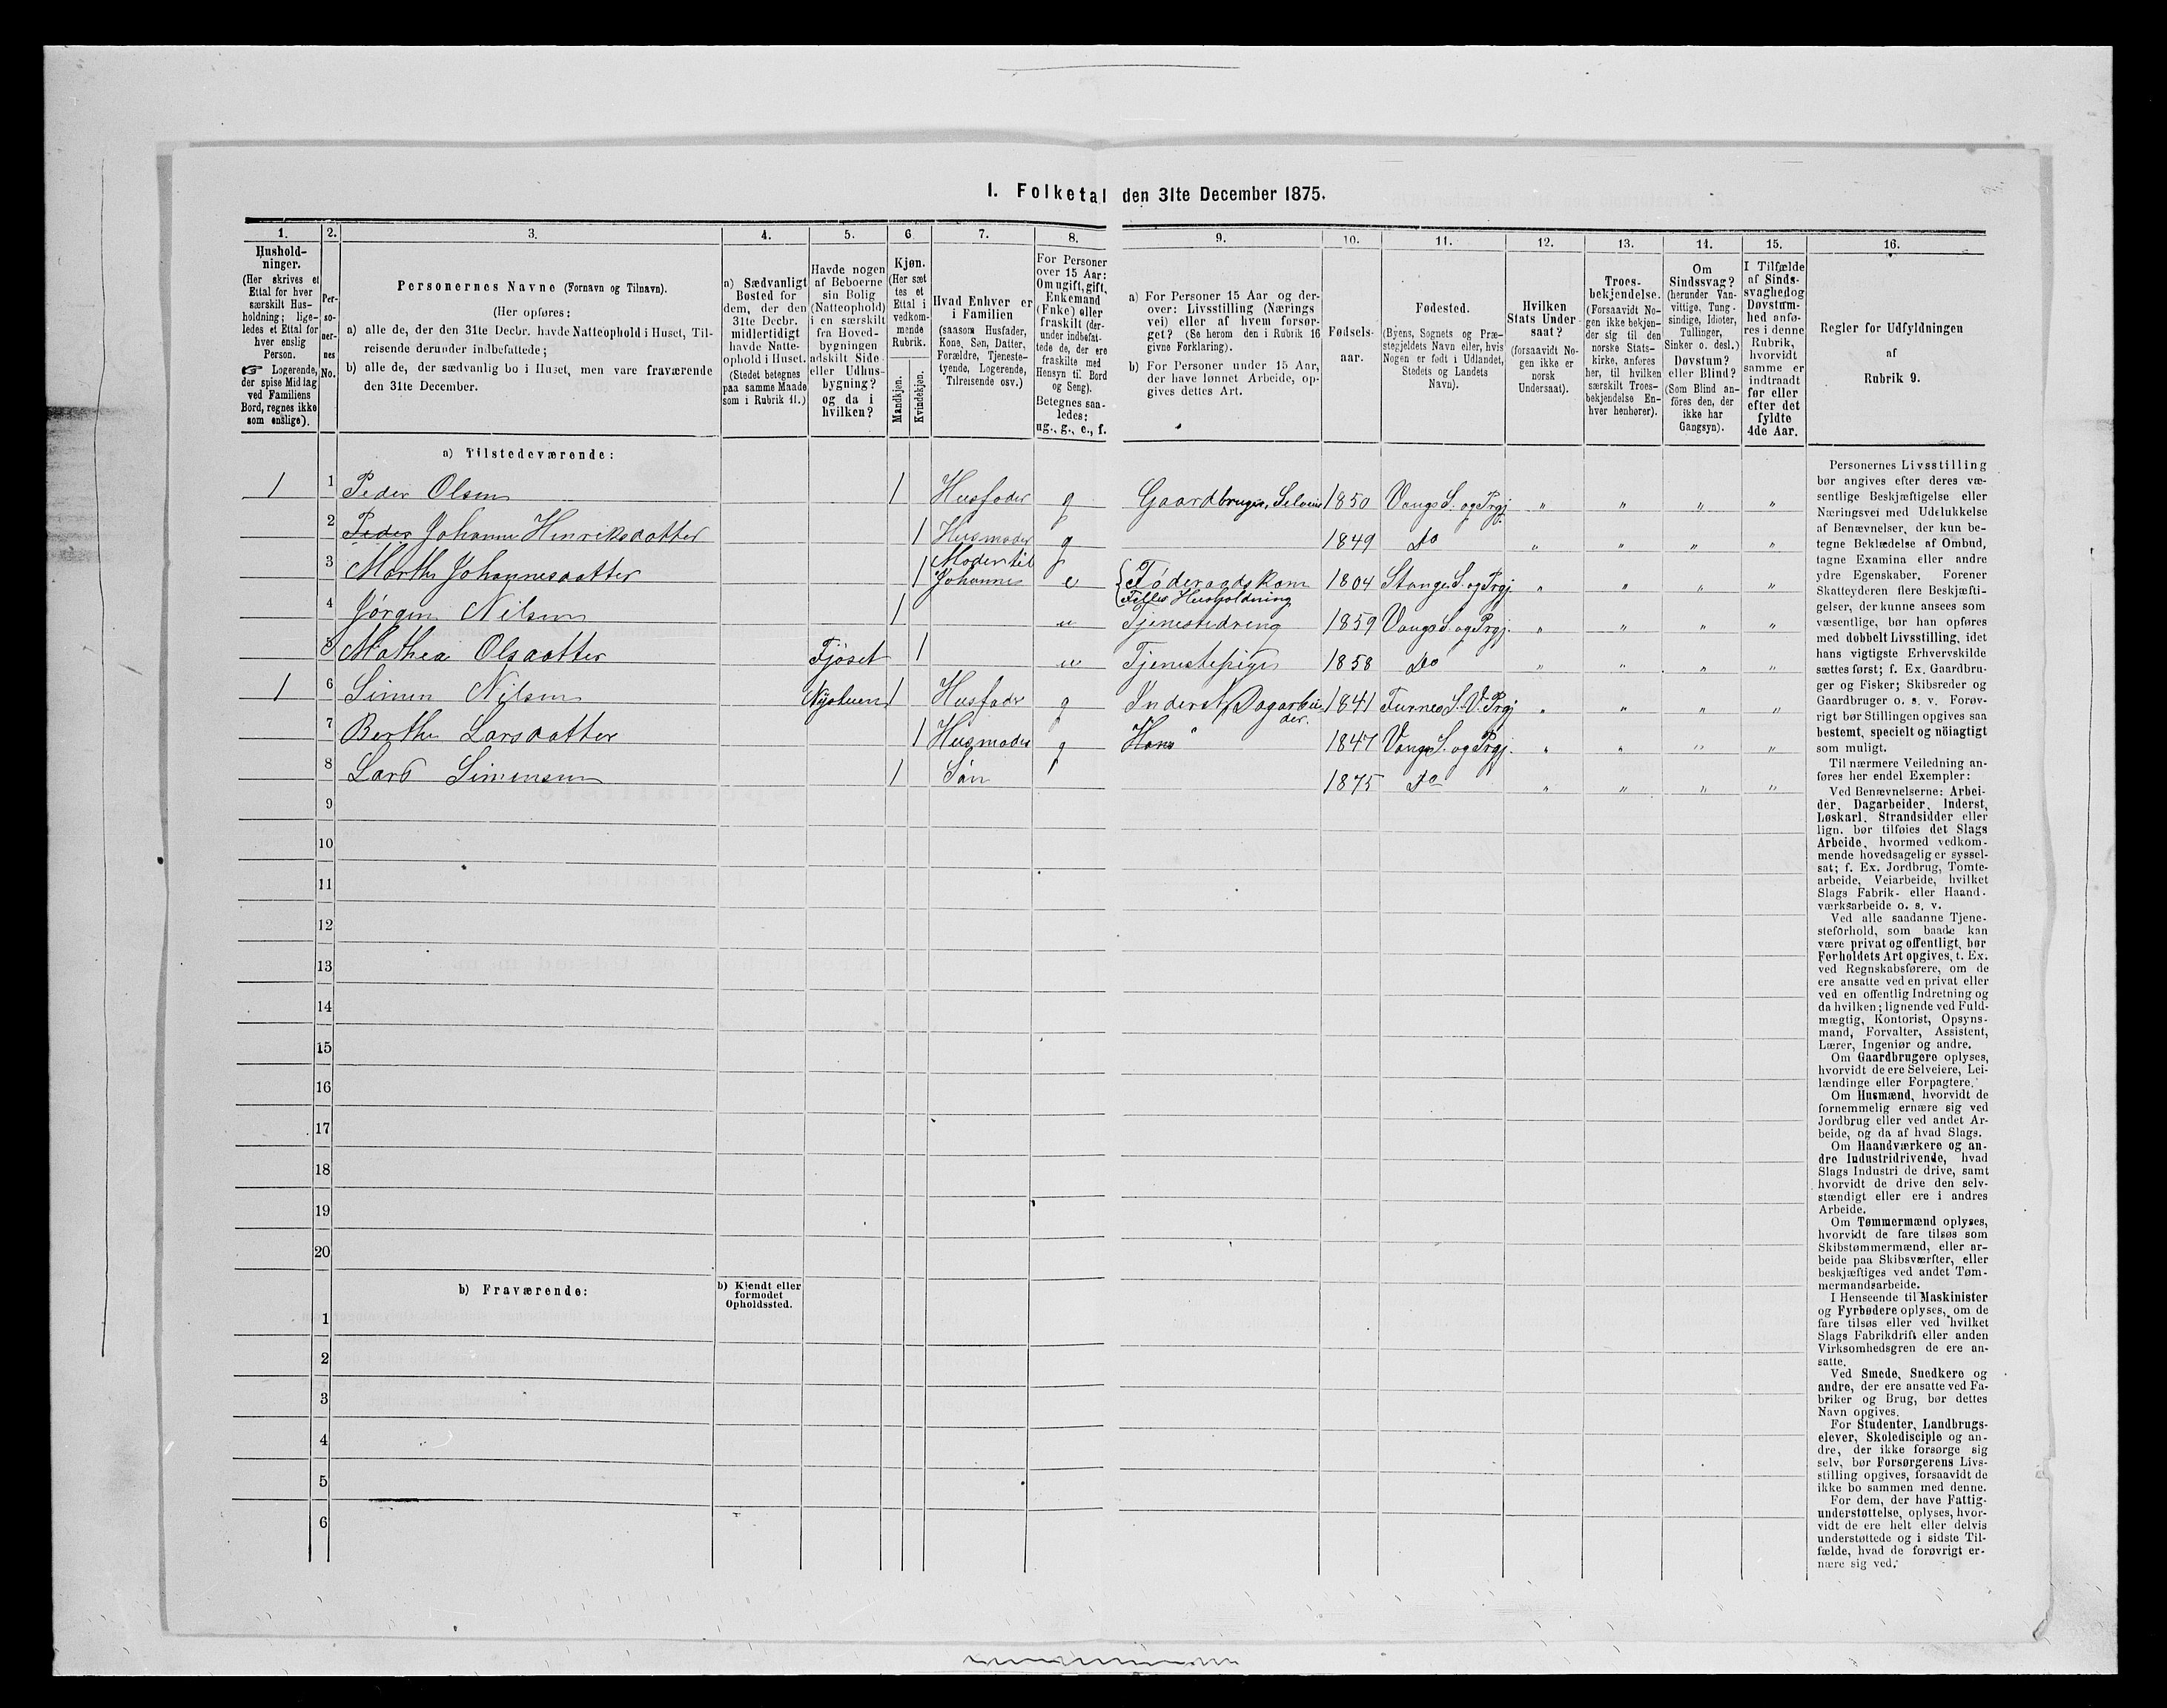 I. Folketal den 31te December 1875.
1.
Hushold-
ninger.
(Her skrives et
Ettal for hver
særskilt Hus-
holdning; lige-
ledes et Ettal for
hver enslig
Person.
☞ Logerende,
der spise Middag
ved Familiens
Bord, regnes ikke
som enslige).
2.
Per-
so-
ner-
nes
No.
3.
Personernes Navne (Fornavn og Tilnavn).
(Her opføres:
a) alle de, der den 31te Decbr. havde Natteophold i Huset, Til-
reisende derunder indbefattede;
b) alle de, der sædvanlig bo i Huset, men vare fraværende
den 31te December.
4.
a) Sædvanligt
Bosted for
dem, der den
31te Decbr.
midlertidigt
havde Natte-
ophold i Huset.
(Stedet betegnes
paa samme Maade
som i Rubrik 11.)
5.
Havde nogen
af Beboerne
sin Bolig
(Natteophold)
i en særskilt
fra Hoved-
bygningen
adskilt Side-
eller Udhus-
bygning?
og da i
hvilken?
6
Kjøn.
(Her sæt
tes et
Ettal i
vedkom-
mende
Rubrik.
Mandkjøn.
Kvindekjøn.
7.
Hvad Enhver er
i Familien
(saasom Husfader,
Kone, Søn, Datter,
Forældre, Tjeneste-
tyende, Logerende,
Tilreisende osv.)
8.
For Personer
over 15 Aar:
Om ugift, gift,
Enkemand
(Enke) eller
fraskilt (der-
under indbefat-
tede de, der ere
fraskilte med
Hensyn til Bord
og Seng).
Betegnes saa-
ledes:
ug., g., e., f.
9.
a) For Personer 15 Aar og der-
over: Livsstilling (Nærings
vei) eller af hvem forsør-
get? (Se herom den i Rubrik 16
givne Forklaring).
b) For Personer under 15 Aar,
der have lønnet Arbeide, op-
gives dettes Art.
10.
Fødsels-
aar.
11.
Fødested.
(Byens, Sognets og Præ-
stegjeldets Navn eller, hvis
Nogen er født i Udlandet,
Stedets og Landets
Navn).
12.
Hvilken
Stats Under-
saat?
(forsaavidt No-
gen ikke er
norsk
Undersaat).
13.
Troes-
bekjendelse.
(Forsaavidt No-
gen ikke bekjen-
der sig til den
norske Stats-
kirke, anføres
her, til hvilken
særskilt Troes-
bekjendelse En-
hver henhører).
14.
Om
Sindssvag?
(herunder Van-
vittige, Tung-
sindige, Idioter,
Tullinger,
Sinker o. desl.)
Døvstum?
eller Blind?
(Som Blind an-
föres den, der
ikke har
Gangsyn).
15.
I Tilfælde
af Sinds-
svaghed og
Døvstum-
hed anfø-
res i denne
Rubrik,
hvorvidt
samme er
indtraadt
før eller
efter det
fyldte
4de Aar.
16.
Regler for Udfyldningen
af
Rubrik 9.
a) Tilstedeværende:
1 1 Peder Olsen 1 Husfader g Gaardbruger, Selveier 1850 Vangs S. og Prgj. " " " "
2 Peder Johanne Henriksdatter 1 Husmoder g 1849 Do " " " "
3 Marthe Johannesdatter 1 Moder til Johannes e Föderaadskone 1804 Stange S. og Prgj. " " " "
Felles Husholdning
4 Jörgen Nilsen 1 " Tjenestedreng 1859 Vangs S. og Prgj. " " " "
5 Mathea Olsdatter Fjöset 1 " Tjenestepige 1858 Do " " " "
1 6 Simen Nilsen 1 Husfader g Inderst, Dagarbeider 1841 Furnes S. V. Prgj " " " "
7 Berthe Larsdatter 1 Husmoder g 1847 Vangs S. og Prgj. " " " "
8 Lars Simensen 1 Sön 1875 Do " " " "
9
10
11
12
13
14
15
16
17
18
19
20
b) Fraværende:
b) Kjendt eller
formodet
Opholdssted.
1
2
3
4
5
6
Personernes Livsstilling
bør angives efter deres væ-
sentlige Beskjæftigelse eller
Næringsvei med Udelukkelse
af Benævnelser, der kun be-
tegne Beklædelse af Ombud,
tagne Examina eller andre
ydre Egenskaber. Forener
Skatteyderen flere Beskjæfti-
gelser, der kunne ansees som
væsentlige, bør han opføres
med dobbelt Livsstilling, idet
hans vigtigste Erhvervskilde
sættes først; f. Ex. Gaardbru-
ger og Fisker; Skibsreder og
Gaardbruger o. s. v. Forøv-
rigt bør Stillingen opgives saa
bestemt, specielt og nöiagtigt
som muligt.
Til nærmere Veiledning an-
føres her endel Exempler:
Ved Benævnelserne: Arbei-
der, Dagarbeider, Inderst,
Løskarl, Strandsidder eller
lign. bør tilføies det Slags
Arbeide, hvormed vedkom-
mende hovedsagelig er syssel-
sat; f. Ex. Jordbrug, Tomte-
arbeide, Veiarbeide, hvilket
Slags Fabrik- eller Haand-
værksarbeide o. s. v.
Ved alle saadanne Tjene-
steforhold, som baade kan
være privat og offentligt, bør
Forholdets Art opgives, t. Ex.
ved Regnskabsførere, om de
ere ansatte ved en privat eller
ved en offentlig Indretning og
da hvilken; lignende ved Fuld-
mægtig, Kontorist, Opsyns-
mand, Forvalter, Assistent,
Lærer, Ingeniør og andre.
Om Gaardbrugere oplyses,
hvorvidt de ere Selveiere, Lei-
lændinge eller Forpagtere.
Om Husmænd, hvorvidt de
fornemmelig ernære sig ved
Jordbrug eller ved andet Ar-
beide, og da af hvad Slags.
Om Haandværkere og an-
dre Industridrivende, hvad
Slags Industri de drive, samt
hvorvidt de drive den selv-
stændigt eller ere i andres
Arbeide.
Om Tømmermænd oplyses,
hvorvidt de fare tilsøs som
Skibstømmermænd, eller ar-
beide paa Skibsværfter, eller
beskjæftiges ved andet Tøm-
mermandsarbeide.
I Henseende til Maskinister
og Fyrbødere oplyses, om de
fare tilsøs eller ved hvilket
Slags Fabrikdrift eller anden
Virksomhedsgren de ere an-
satte.
Ved Smede, Snedkere og
andre, der ere ansatte ved Fa-
briker og Brug, bør dettes
Navn opgives.
For Studenter, Landbrugs-
elever, Skoledisciple og an-
dre, der ikke forsørge sig
selv, bør Forsørgerens Livs-
stilling opgives, forsaavidt de
ikke bo sammen med denne.
For dem, der have Fattig-
understøttelse, oplyses, hvor-
vidt de ere helt eller delvis
understøttede og i sidste Til-
fælde, hvad de forøvrigt er-
nære sig ved.